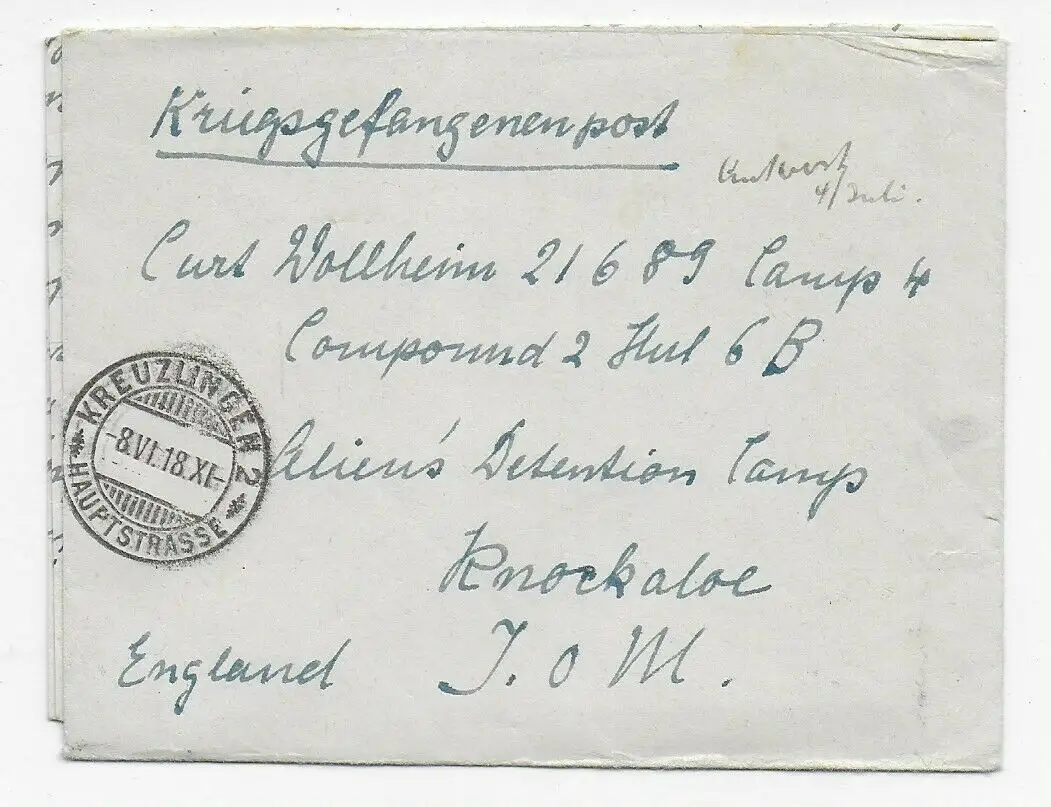 Kriegsgefangenenpost
Antwort
4/Juli.
Curt Wollheim 21689 Camp 4
Compound 2 Hut 6 B
Alien's Detention Camp
Knockaloe
England I. o M.
KREUZLINGEN 2
-8.VI.18.XI-
HAUPTSTRASSE